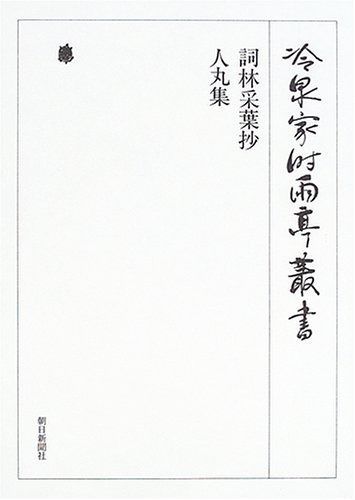 冷泉家时雨亭叢書
詞林采葉抄
人丸集
朝日新聞社